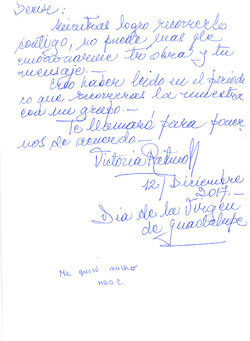 Mientras logro recorrerlo
contigo, no puedo mas que
emocionarme tu obra y tu
mensaje.-
Creo haber leido en el periodi
co que recorreras la muestra
con un grupo.-
Te llamaré para poner
nos de acuerdo.-
Victoria
12/Diciembre
2017.-
Dia de la Virgen
de Guadalupe
Me gustó mucho